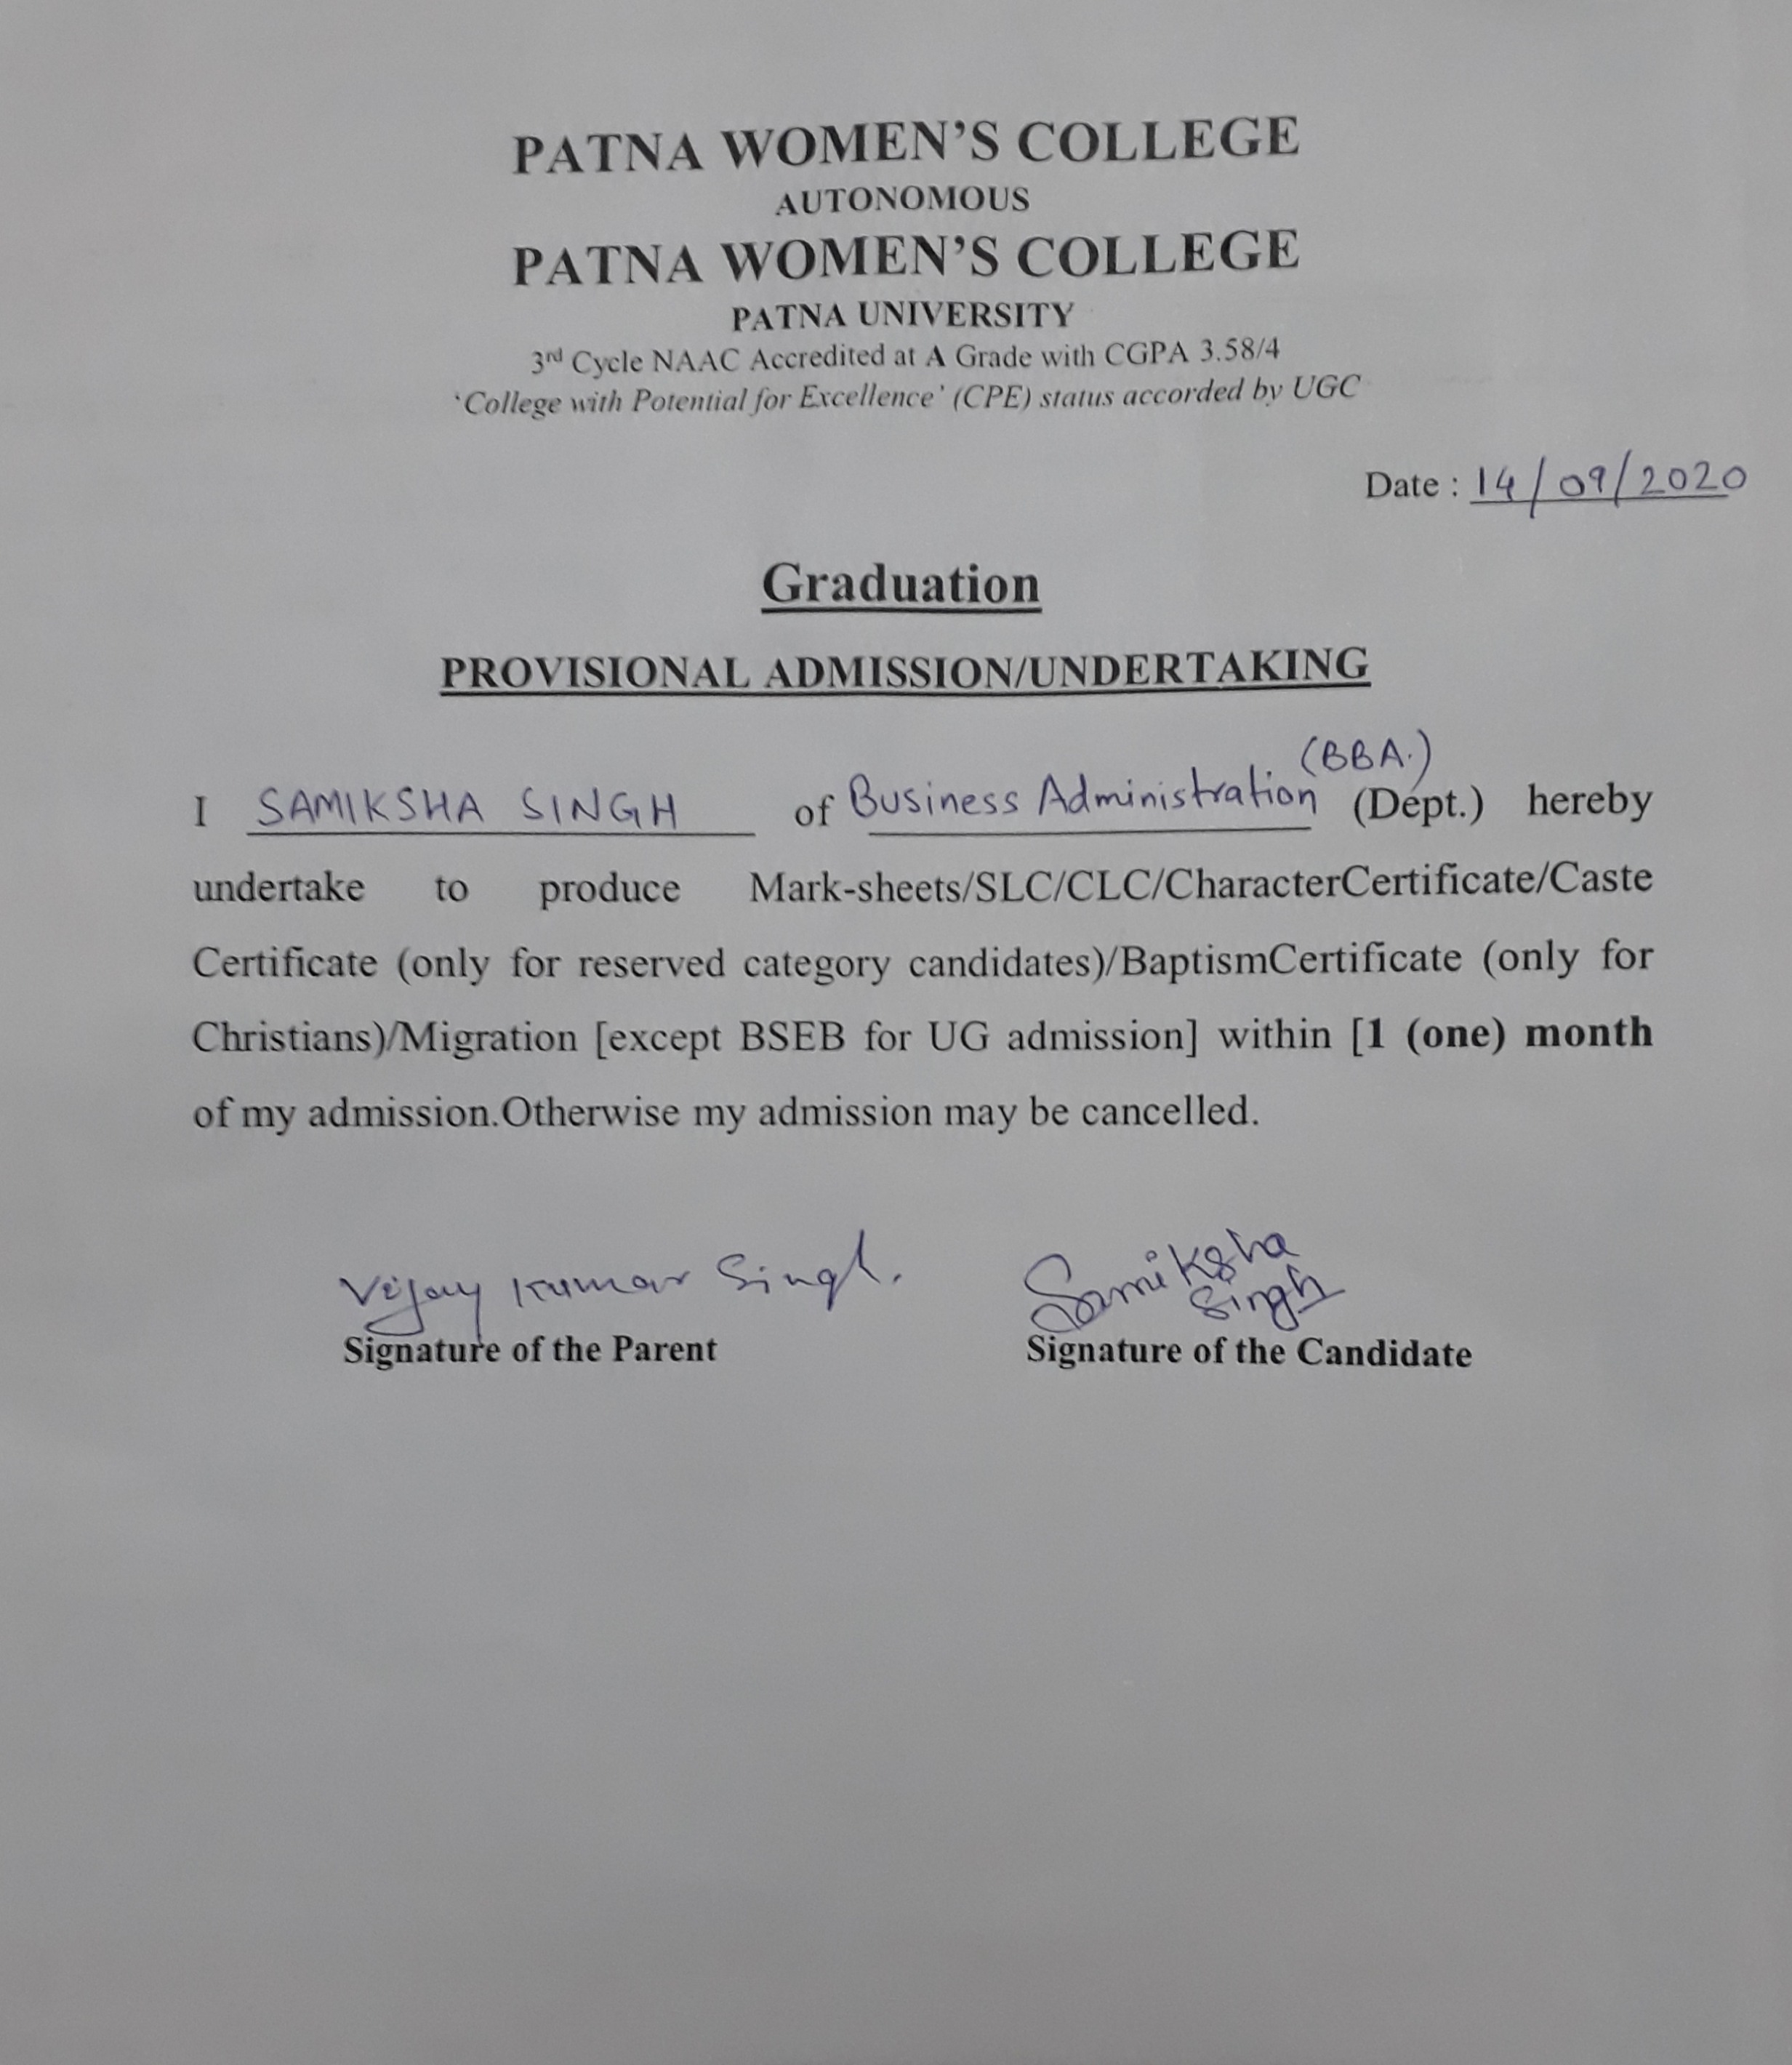 PATNA WOMEN'S COLLEGE
AUTONOMOUS
PATNA WOMEN'S COLLEGE
PATNA UNIVERSITY
3rd Cycle NAAC Accredited at A Grade with CGPA 3.58/4
'College with Potential for Excellence' (CPE) status accorded by UGC
Date : 14/09/2020
Graduation
PROVISIONAL ADMISSION/UNDERTAKING
(BBA.)
I SAMIKSHA SINGH of Business Administration (Dept.) hereby
undertake to produce Mark-sheets/SLC/CLC/CharacterCertificate/Caste
Certificate (only for reserved category candidates)/BaptismCertificate (only for
Christians)/Migration [except BSEB for UG admission] within [1 (one) month
of my admission.Otherwise my admission may be cancelled.
Vijay Kumar Singh. Samiksha
Singh
Signature of the Parent Signature of the Candidate